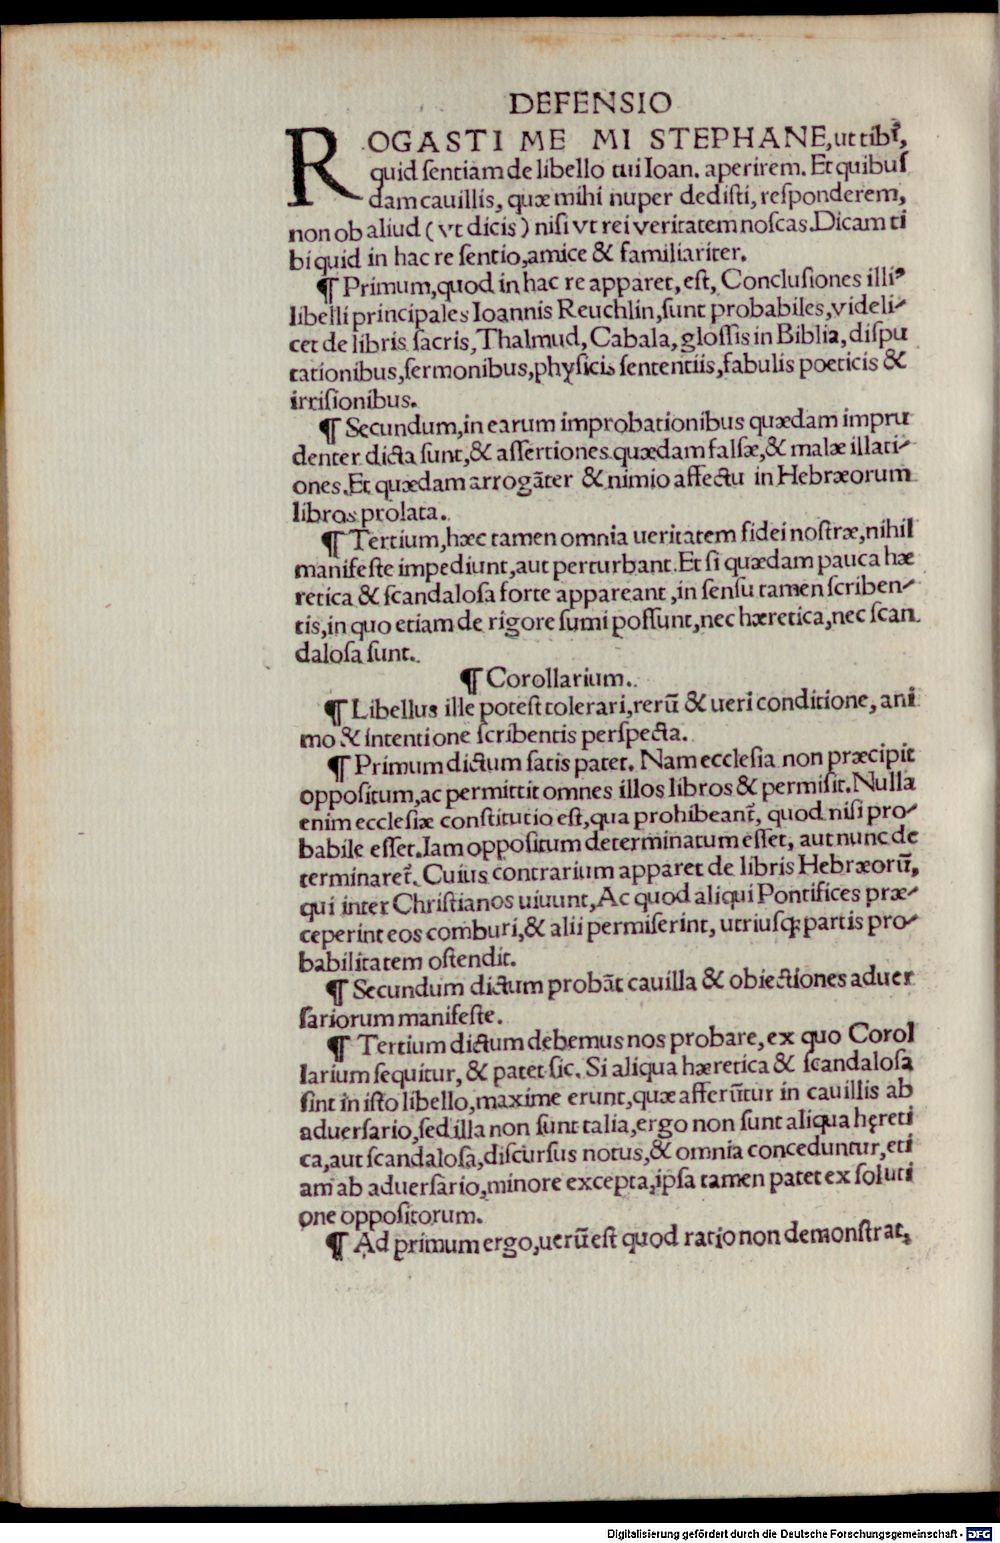 DEFENSIO
ROGASTI ME MI STEPHANE, ut tibi,
quid ſentiam de libello tui Ioan. aperirem. Et quibuſ
dam cauillis, quæ mihi nuper dediſti, reſponderem,
non ob aliud (vt dicis) niſi vt rei veritatem noſcas. Dicam ti
bi quid in hac re ſentio, amice & familiariter.
¶ Primum, quod in hac re apparet, eſt, Concluſiones illi⸗
libelli principales Ioannis Reuchlin, ſunt probabiles, videli⸗
cet de libris ſacris, Thalmud, Cabala, gloſſis in Biblia, diſpu
tationibus, ſermonibus, phyſicis ſententiis, fabulis poeticis &
irriſionibus.
¶ Secundum, in earum improbationibus quædam impru
denter dicta ſunt, & aſſertiones quædam falſæ, & malæ illati⸗
ones. Et quædam arrogāter & nimio affectu in Hebræorum
libros prolata.
¶ Tertium, hæc tamen omnia ueritatem fidei noſtræ, nihil
manifeſte impediunt, aut perturbant. Et ſi quædam pauca hæ
retica & ſcandaloſa forte appareant, in ſenſu tamen ſcriben⸗
tis, in quo etiam de rigore ſumi poſſunt, nec hæretica, nec ſcan
daloſa ſunt.
¶ Corollarium.
¶ Libellus ille poteſt tolerari, rerū & ueri conditione, ani
mo & intentione ſcribentis perſpecta.
¶ Primum dictum ſatis patet. Nam eccleſia non præcipit
oppoſitum, ac permittit omnes illos libros & permiſit. Nulla
enim eccleſiæ conſtitutio eſt, qua prohibeant̃, quod niſi pro⸗
babile eſſet. Iam oppoſitum determinatum eſſet, aut nunc de
terminaret̃. Cuius contrarium apparet de libris Hebræorū,
qui inter Chriſtianos uiuunt, Ac quod aliqui Pontifices præ⸗
ceperint eos comburi, & alii permiſerint, utriuſq; partis pro⸗
babilitatem oſtendit.
¶ Secundum dictum probāt cauilla & obiectiones aduer
ſariorum manifeſte.
¶ Tertium dictum debemus nos probare, ex quo Corol
larium ſequitur, & patet ſic. Si aliqua hæretica & ſcandaloſa
ſint in iſto libello, maxime erunt, quæ afferūtur in cauillis ab
aduerſario, ſed illa non ſunt talia, ergo non ſunt aliqua hęreti
ca, aut ſcandaloſa, diſcurſus notus, & omnia conceduntur, eti
am ab aduerſario, minore excepta, ipſa tamen patet ex ſoluti
one oppoſitorum.
¶ Ad primum ergo, uerū eſt quod ratio non demonſtrat,
Digitalisierung gefördert durch die Deutsche Forschungsgemeinschaft - DFG